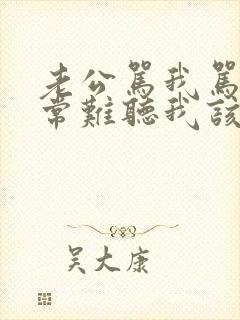 老公罵我罵
常難聽我該
吴大康